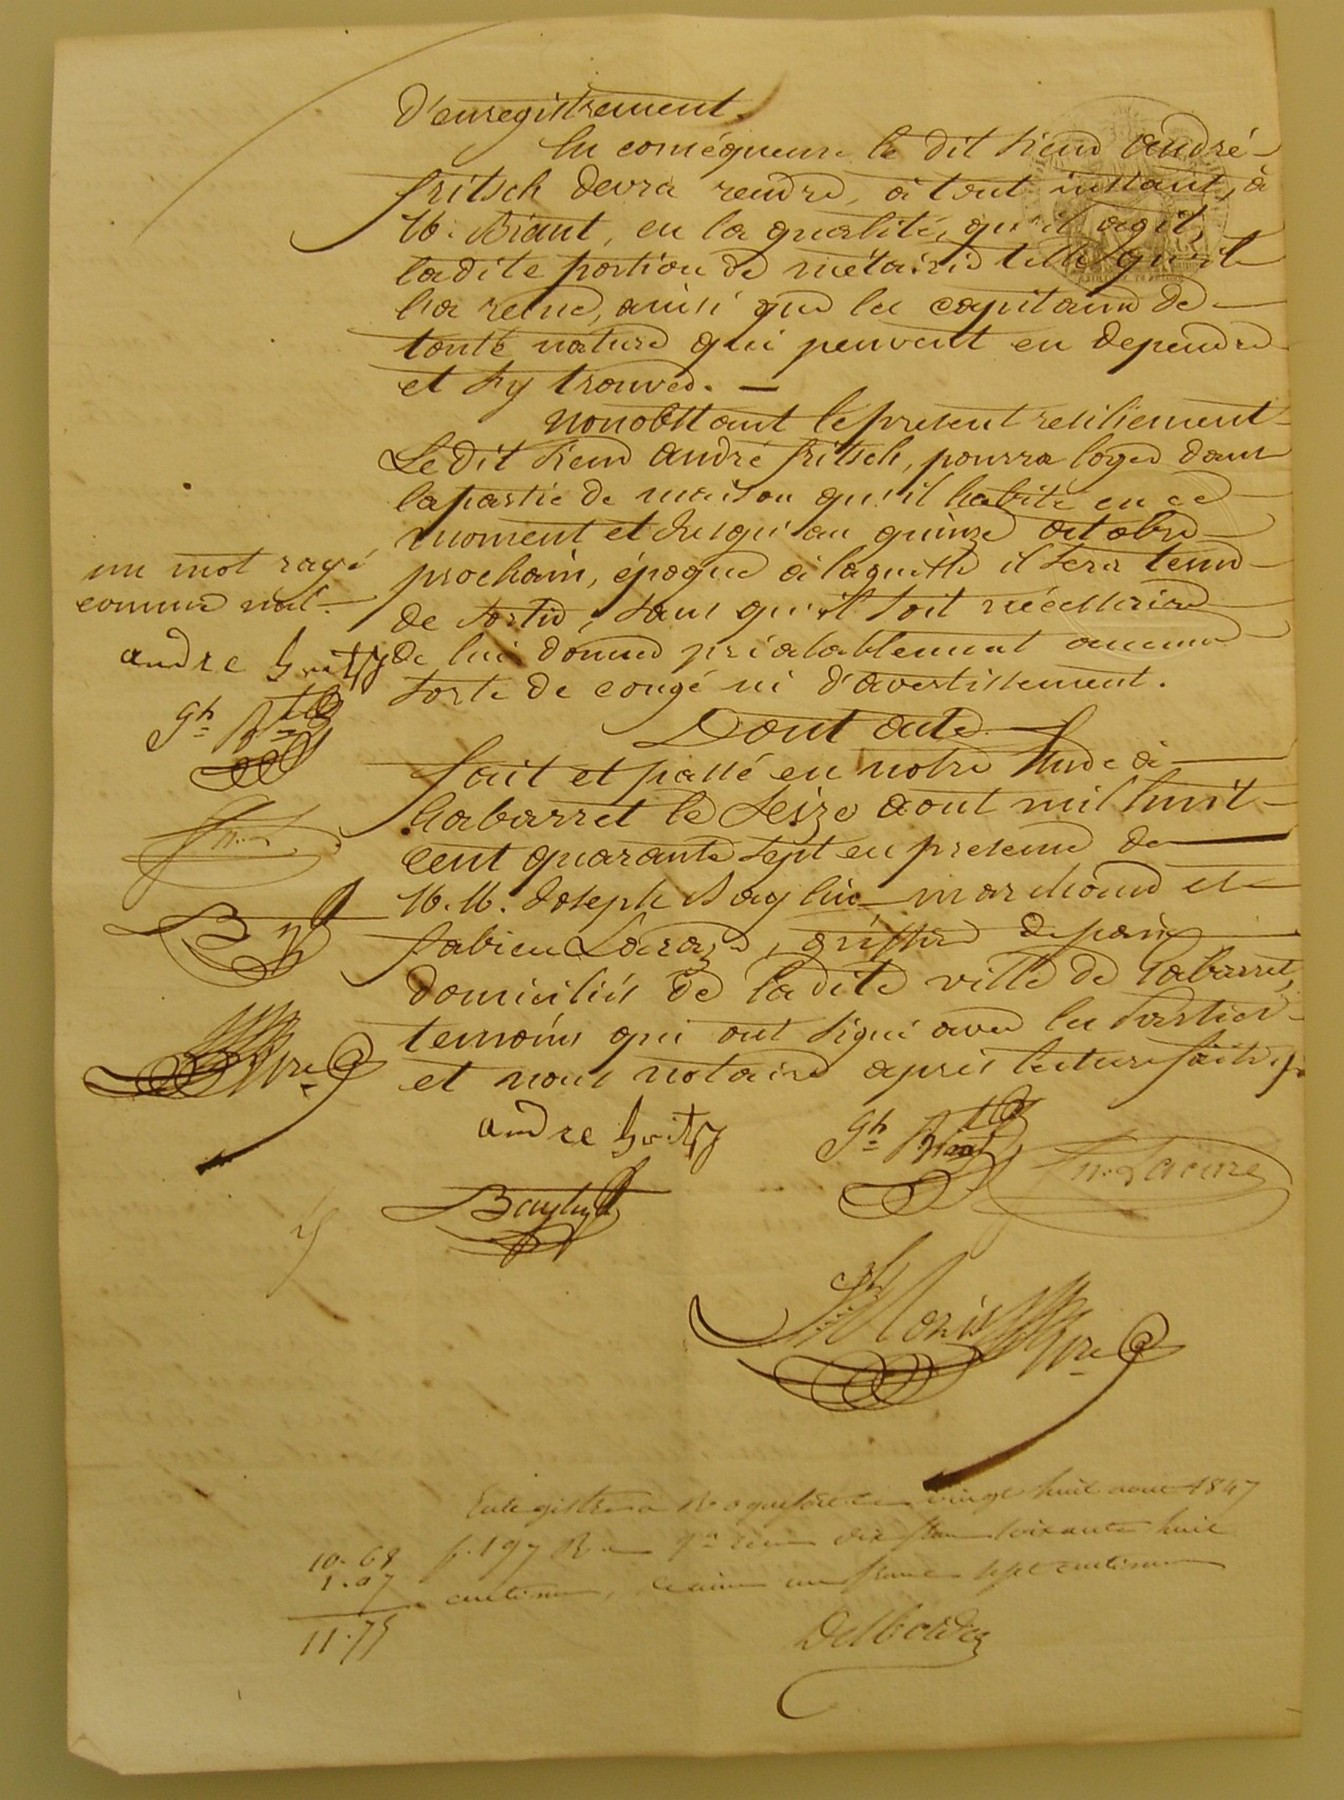 d'enregistrement.
En conséquence le dit sieur andré
fritsch devra rendre, à tout instant, à
M. Biant, en la qualité, qu'il agit,
ladite portion de métairie telle qu'il
l'a reçue, ainsi que les capitaux de
toute nature qui peuvent en dependre
et s'y trouver.
Nonobstant le present resiliement
Le dit sieur andré fritsch, pourra loger dans
la partie de maison qu'il habite en ce
moment et Jusqu'au quinze octobre
prochain, époque à laquelle il sera tenu
de sortir, sans qu'il soit nécessaire
de lui donner préalablement aucune
sorte de congé ni d'avertissement.
un mot rayé
comme nul.
andre
Gh
Dont acte
fait et passé en notre Etude à
Gabarret le Seize aout mil huit
cent quarante sept en presence de
M.M. Joseph marchand et
fabien de paix
domiciliés de la dite ville de Gabarret,
temoins qui ont signé avec les parties
et nous notaire après lecture faite
andre
Gh Biant
Lacaze
Enregistré a Roquefort le vingt huit aout 1847
f. 197 reçu dix francs soixante huit
centimes, décime un franc sept centimes
10.68
1.07
11.75